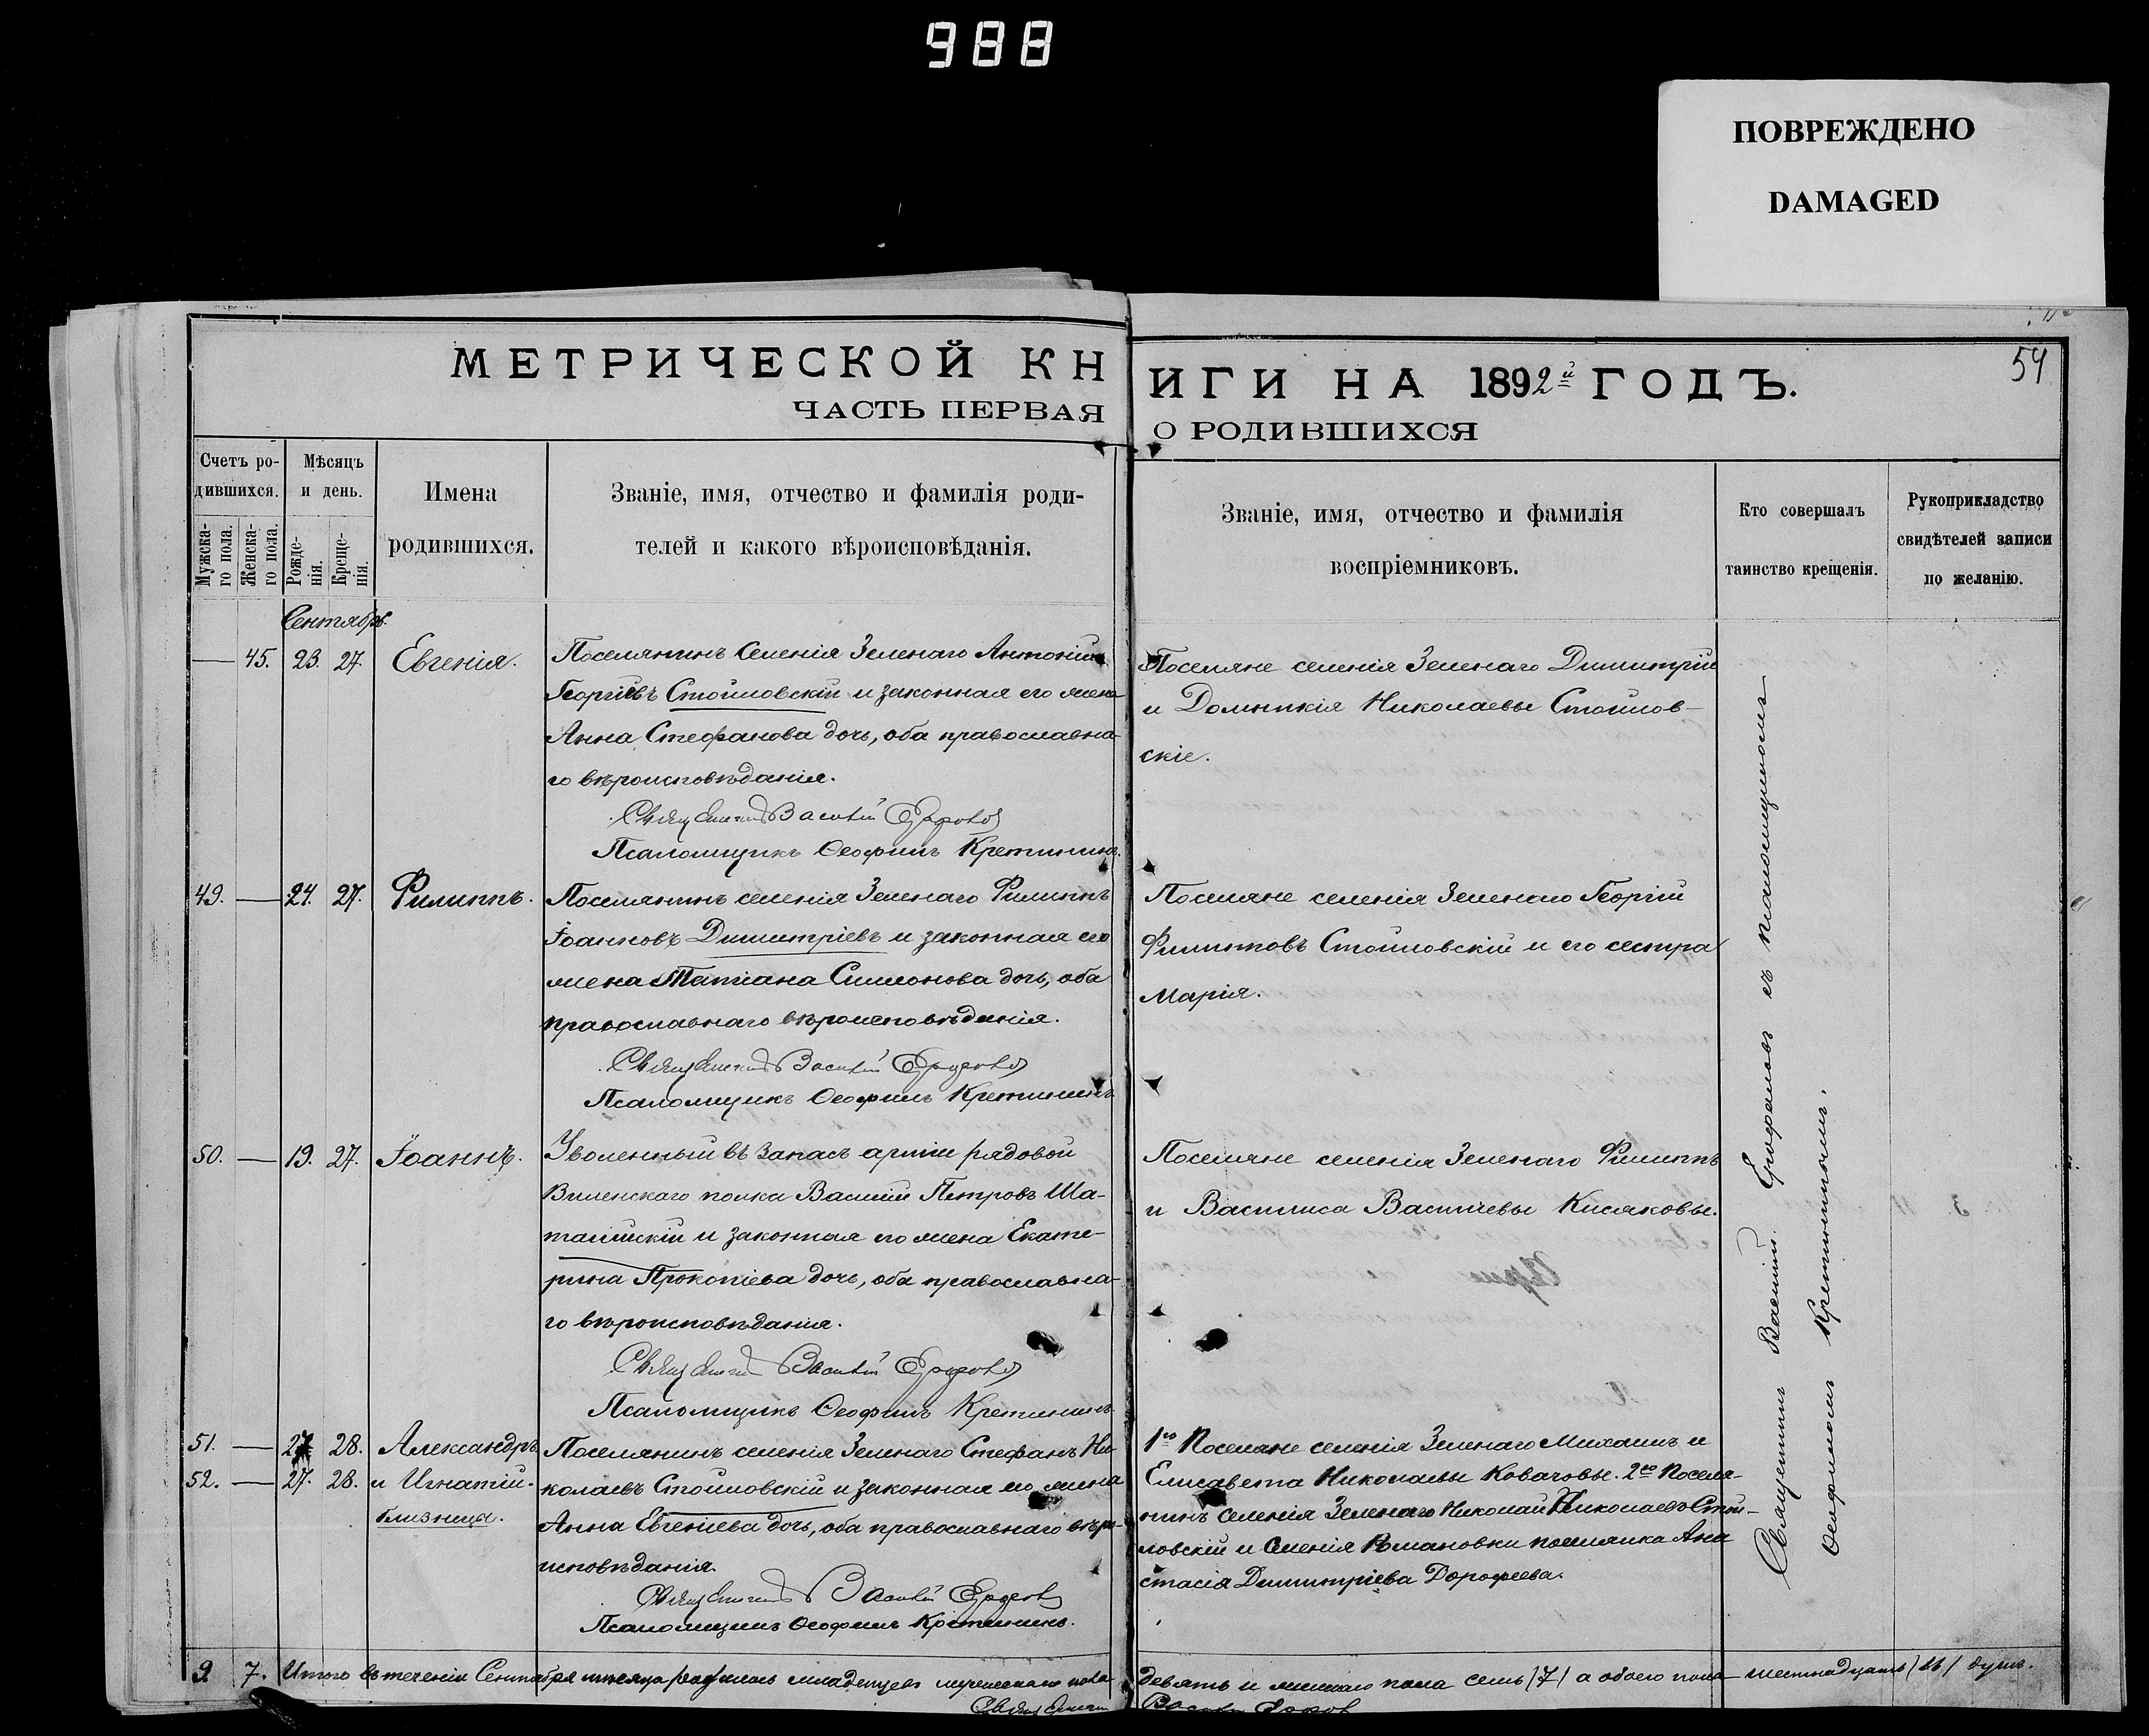 988
ПОВРЕЖДЕНО
DAMAGED
54
МЕТРИЧЕСКОЙ КНИГИ НА 1892й ГОДЪ.
ЧАСТЬ ПЕРВАЯ О РОДИВШИХСЯ
Счетъ ро-
дившихся.
Мужска-
го пола.
Женска-
го пола.
Мѣсяцъ
и день.
Рожде-
нія.
Креще-
нія.
Имена
родившихся.
Званіе, имя, отчество и фамилія роди-
телей и какого вѣроисповѣданія.
Званіе, имя, отчество и фамилія
воспріемниковъ.
Кто совершалъ
таинство крещенія.
Рукоприкладство
свидѣтелей записи
по желанію.
Сентябрь.
— 45. 23. 27. Евгенія.
Поселянинъ селенія Зеленаго Антоній
Георгіевъ Стойловскій и законная его жена
Анна Стефанова дочь, оба православна-
го вѣроисповѣданія.
Священникъ Василій
Псаломщикъ Ѳеофилъ Кретининъ.
Поселяне селенія Зеленаго Димитрій
и Домникія Николаевы Стойлов-
скіе.
49. — 24. 27. Филиппъ.
Поселянинъ селенія Зеленаго Филиппъ
Іоанновъ Димитріевъ и законная его
жена Татіана Симеонова дочь, оба
православнаго вѣроисповѣданія.
Священникъ Василій
Псаломщикъ Ѳеофилъ Кретининъ
Поселяне селенія Зеленаго Георгій
Филипповъ Стойловскій и его сестра
Марія.
50. — 19. 27. Іоаннъ.
Уволенный въ запасъ арміи рядовой
Виленскаго полка Василій Петровъ Ша-
и законная его жена Екате-
рина Прокопіева дочь, оба православна-
го вѣроисповѣданія.
Священникъ Василій
Псаломщикъ Ѳеофилъ Кретининъ.
Поселяне селенія Зеленаго Филиппъ
и Василиса Василіевы Кисяковы.
51. — 27. 28. Александръ
52. — 27. 28. и Игнатій
близнецы.
Поселянинъ селенія Зеленаго Стефанъ Ни-
колаевъ Стойловскій и законная его жена
Анна Евгеніева дочь, оба православнаго вѣро-
исповѣданія.
Священникъ Василій
Псаломщикъ Ѳеофилъ Кретининъ.
1го Поселяне селенія Зеленаго Михаилъ и
Елисавета Николаевы Ковачовы. 2го Поселя-
нинъ селенія Зеленаго Николай Николаевъ Стой-
ловскій и селенія Романовки поселянка Ана
стасія Димитріева Дорофеева.
Священникъ Василій съ псаломщикомъ
Ѳеофиломъ Кретининымъ.
9 7. Итого въ теченіи Сентября мѣсяца родилось младенцевъ мужескаго пола девять и женскаго пола семь (7) а обоего пола шестнадцать (16) душъ.
Священникъ Василій